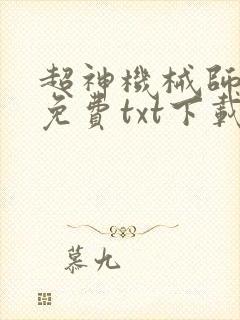 超神機械師
免費txt下載
慕九